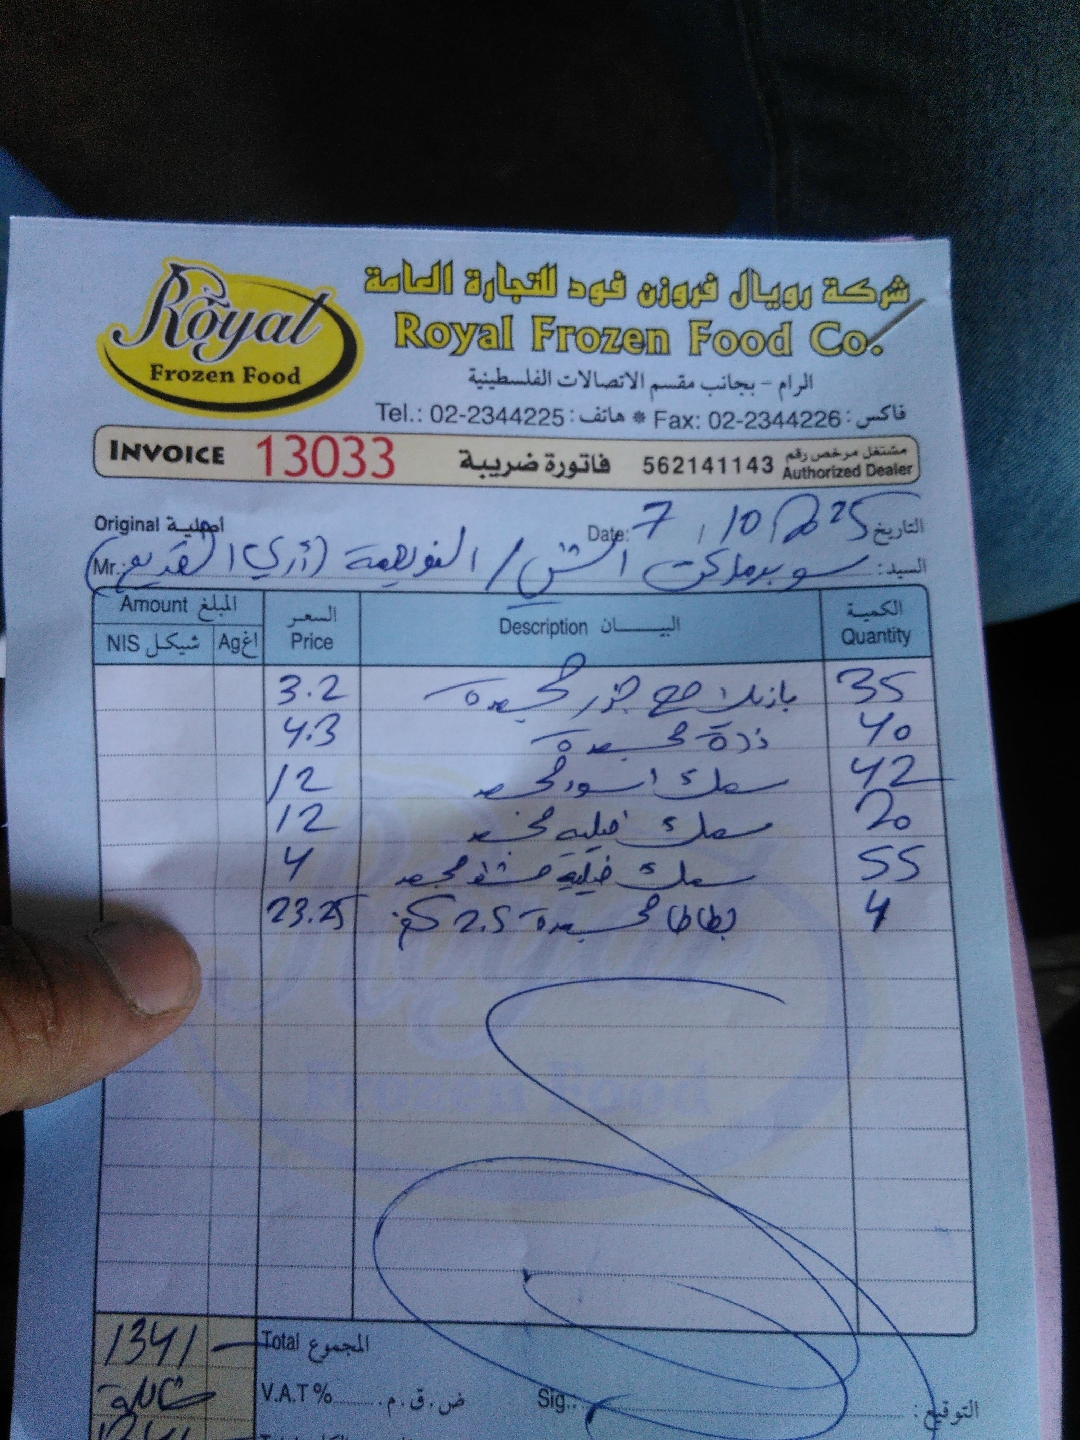 Royal
Frozen Food
شركة رويال فروزن فود للتجارة العامة
Royal Frozen Food Co.
الرام - بجانب مقسم الاتصالات الفلسطينية
Tel.: 02-2344225 : هاتف * Fax: 02-2344226 : فاكس
INVOICE 13033 فاتورة ضريبة 562141143 مشتغل مرخص رقم Authorized Dealer
Original أصلية Date: 7 / 10 / 2025 التاريخ
Mr.: سوبرماركت / السيد:
Amount المبلغ السعر Price البيـــان Description الكمية Quantity
NIS شيكل Ag اغ
35 بازيلا مع جزر مجمدة 3.2
40 ذرة مجمدة 4.3
42 سمك اسود مجمد 12
20 سمك فيليه مجمد 12
55 سمك فيليه مجمد 4
4 بطاطا مجمدة 2.5 كغم 23.25
Frozen Food
1341 Total المجموع
شاملة V.A.T % ض.ق.م. Sig.: التوقيع:
1341